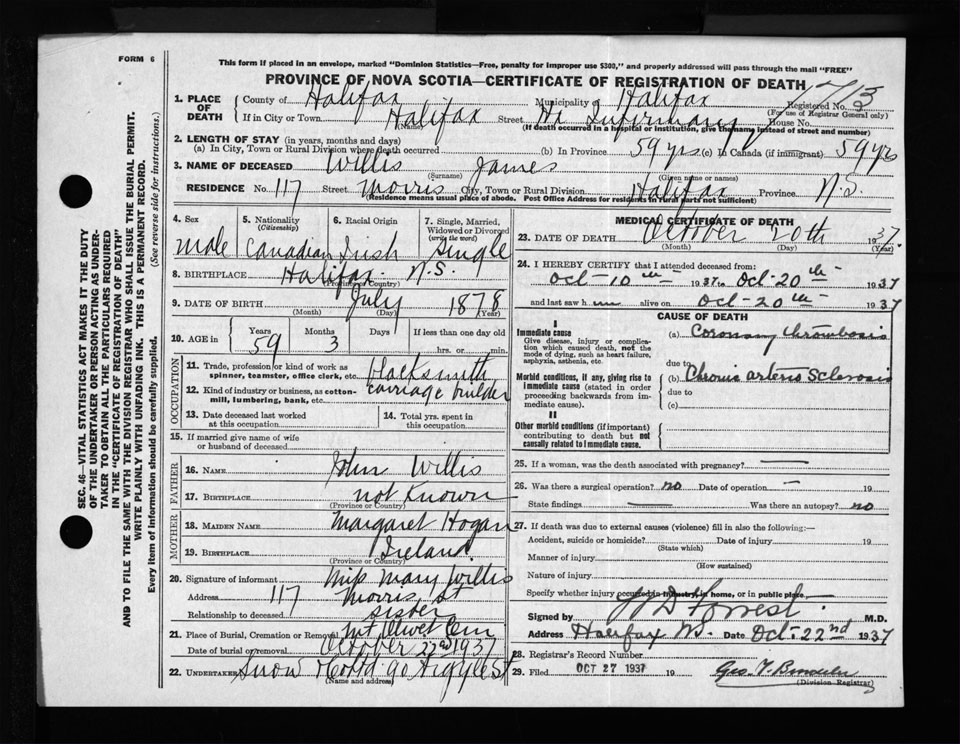 FORM 6
This form if placed in an envelope, marked "Dominion Statistics—Free, penalty for improper use $300," and properly addressed will pass through the mail "FREE"
PROVINCE OF NOVA SCOTIA—CERTIFICATE OF REGISTRATION OF DEATH
1. PLACE OF DEATH
County of Halifax Municipality Halifax Registered No.
(For use of Registrar General only)
If in City or Town Halifax Street Hx Infirmary House No.
(Name) (If death occurred in a hospital or institution, give the name instead of street and number)
2. LENGTH OF STAY (in years, months and days)
(a) In City, Town or Rural Division where death occurred (b) In Province 59 yrs (c) In Canada (if immigrant) 59 yrs
3. NAME OF DECEASED Willis James
(Surname) (Given name or names)
RESIDENCE No. 117 Street Morris City, Town or Rural Division Halifax Province N.S.
(Residence means usual place of abode. Post Office Address for residents in rural parts not sufficient)
4. Sex
male
5. Nationality (Citizenship)
Canadian
6. Racial Origin
Irish
7. Single, Married, Widowed or Divorced (write the word)
Single
8. BIRTHPLACE Halifax N.S.
(Province or Country)
9. DATE OF BIRTH July 1878
(Month) (Day) (Year)
10. AGE in Years 59 Months 3 Days If less than one day old
hrs. or min.
OCCUPATION
11. Trade, profession or kind of work as spinner, teamster, office clerk, etc. blacksmith
12. Kind of industry or business, as cotton-mill, lumbering, bank, etc. carriage builder
13. Date deceased last worked at this occupation
14. Total yrs. spent in this occupation
15. If married give name of wife or husband of deceased
FATHER
16. NAME John Willis
17. BIRTHPLACE not known
(Province or Country)
MOTHER
18. MAIDEN NAME Margaret Hogan
19. BIRTHPLACE Ireland
(Province or Country)
20. Signature of informant Miss Mary Willis
Address 117 Morris St
Relationship to deceased sister
21. Place of Burial, Cremation or Removal Mt Olivet Cem
Date of burial or removal October 22nd 1937
22. UNDERTAKER Snow & Co Ltd 90 Argyle St
(Name and address)
MEDICAL CERTIFICATE OF DEATH
23. DATE OF DEATH October 20th 1937
(Month) (Day) (Year)
24. I HEREBY CERTIFY that I attended deceased from:
Oct-10th 1937 to Oct-20th 1937
and last saw h im alive on Oct-20th 1937
CAUSE OF DEATH
I
Immediate cause
Give disease, injury or complication which caused death, not the mode of dying, such as heart failure, asphyxia, asthenia, etc.
(a) Coronary thrombosis
due to
Morbid conditions, if any, giving rise to immediate cause (stated in order proceeding backwards from immediate cause).
(b) Chronic arterio Sclerosis
due to
(c)
II
Other morbid conditions (if important) contributing to death but not causally related to immediate cause.
25. If a woman, was the death associated with pregnancy? —
26. Was there a surgical operation? no Date of operation — 19
State findings Was there an autopsy? no
27. If death was due to external causes (violence) fill in also the following:—
Accident, suicide or homicide? Date of injury 19
(State which)
Manner of injury
(How sustained)
Nature of injury
Specify whether injury occurred in industry, in home, or in public place
Signed by Forrest M.D.
Address Halifax N.S. Date Oct. 22nd 1937
28. Registrar's Record Number
29. Filed OCT 27 1937 19
(Division Registrar)
SEC. 46—VITAL STATISTICS ACT MAKES IT THE DUTY
OF THE UNDERTAKER OR PERSON ACTING AS UNDER-
TAKER TO OBTAIN ALL THE PARTICULARS REQUIRED
IN THE "CERTIFICATE OF REGISTRATION OF DEATH"
AND TO FILE THE SAME WITH THE DIVISION REGISTRAR WHO SHALL ISSUE THE BURIAL PERMIT.
WRITE PLAINLY WITH UNFADING INK. THIS IS A PERMANENT RECORD.
Every item of Information should be carefully supplied. (See reverse side for instructions).